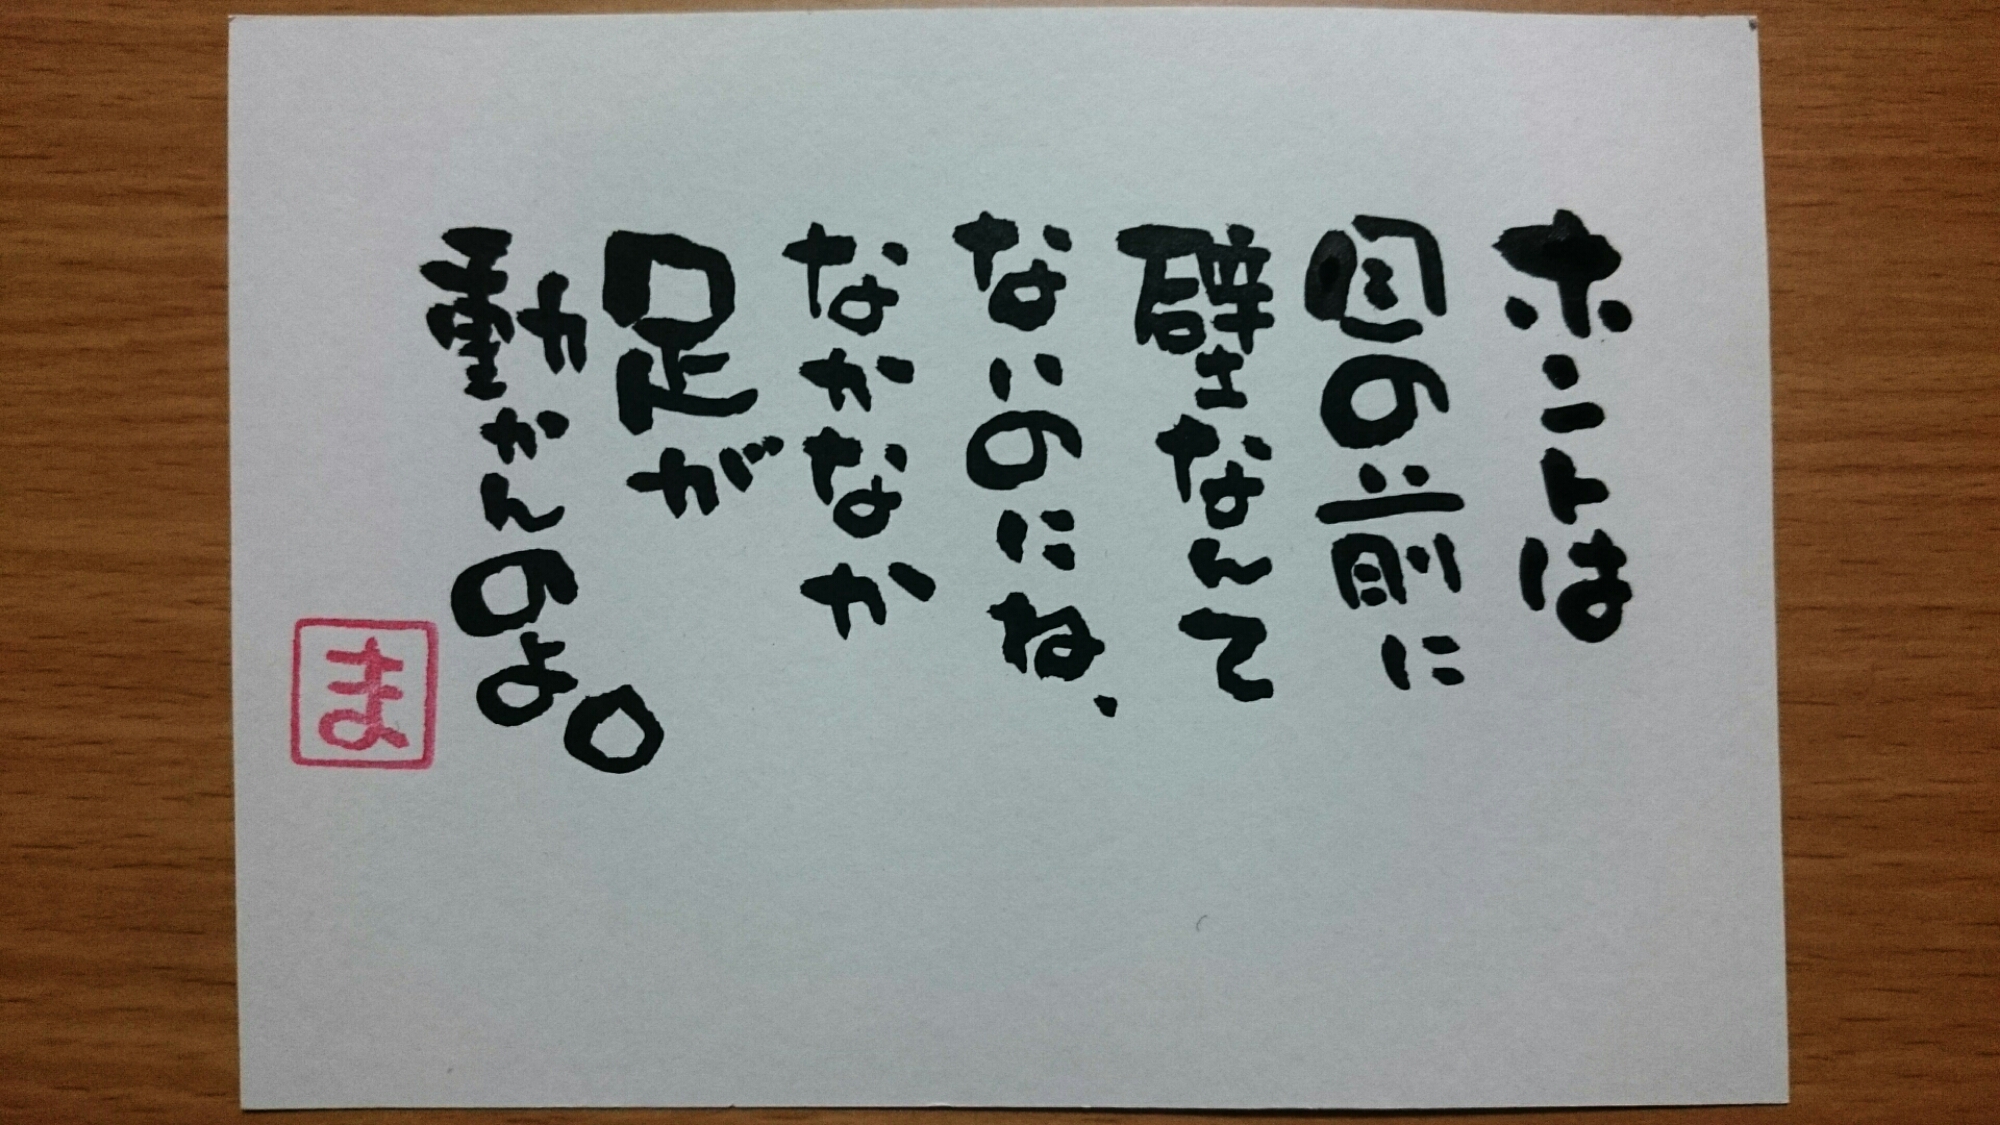 ホントは
目の前に
壁なんて
ないのにね、
なかなか
足が
動かんのよ。
ま